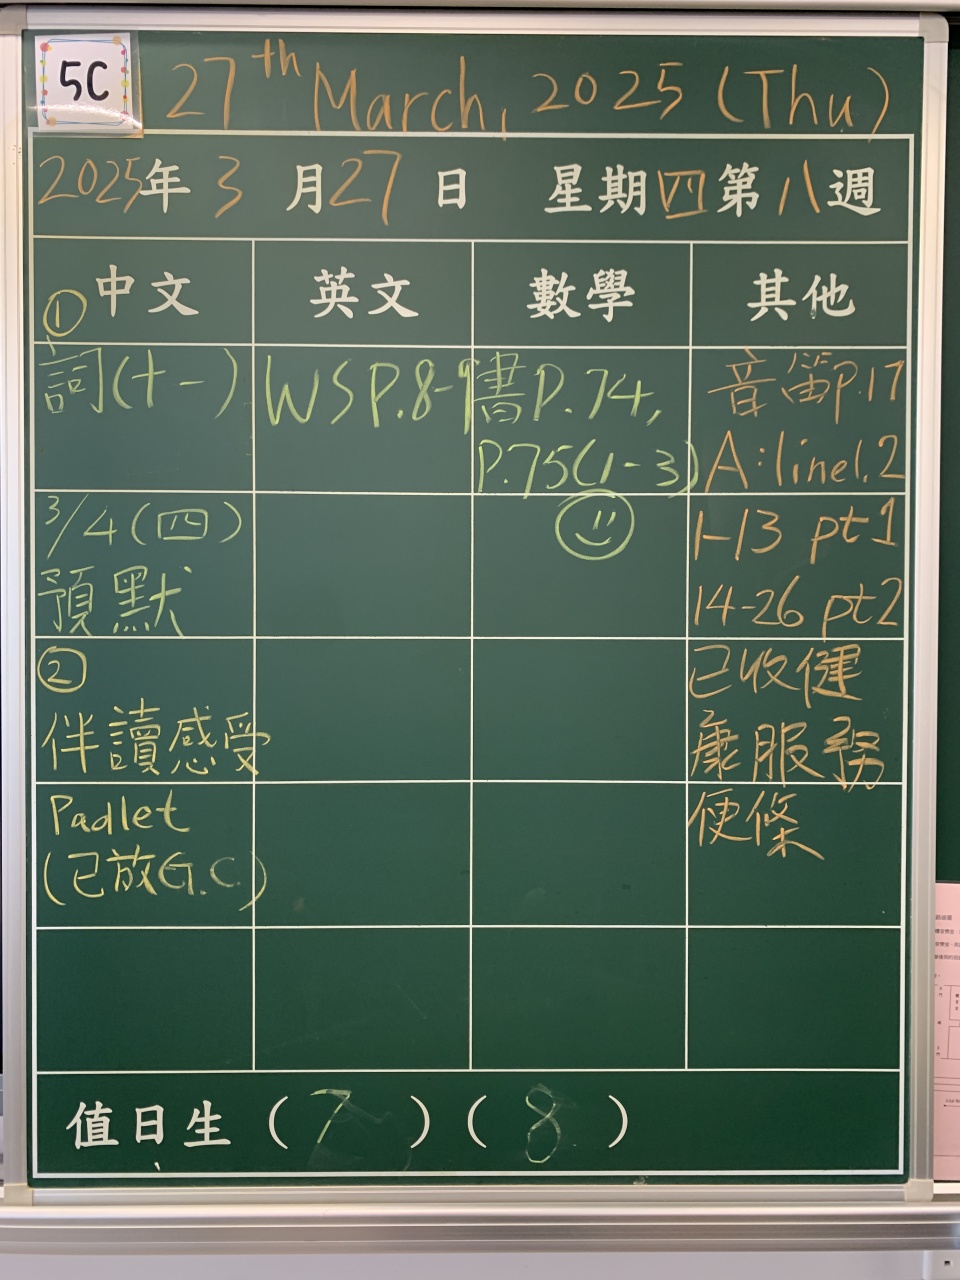 5C
27th March, 2025 (Thu)
2025年 3 月 27 日 星期四第八週
中文 英文 數學 其他
①
詞(十一)
3/4(四)
預默
②
伴讀感受
Padlet
(已放G.C.)
WS P.8-9
書P.74,
P.75(1-3)
音 笛P.17
A:line1.2
1-13 pt1
14-26 pt2
已收健
康服務
便條
值日生 ( 7 ) ( 8 )